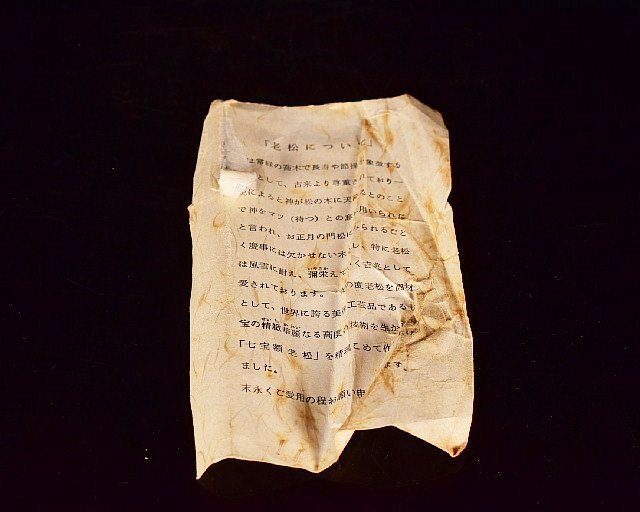 「老松について」
は常緑の高木で長寿や節操を象徴する
として、古来より尊重されており一
によると神が松の木に天 るとのこと
で神をマツ（待つ）との意 用いられた
と言われ、お正月の門松に みられるごと
く慶事には欠かせない木 し、特に老松
は風雪に耐え、彌栄え く吉兆として
愛されております。 の度老松を題材
として、世界に誇る美 工芸品である
宝の精緻華麗なる高度 技術を生か
「七宝額老松」を精 こめて作
ました。 ます。
末永くご愛用の程お願い申